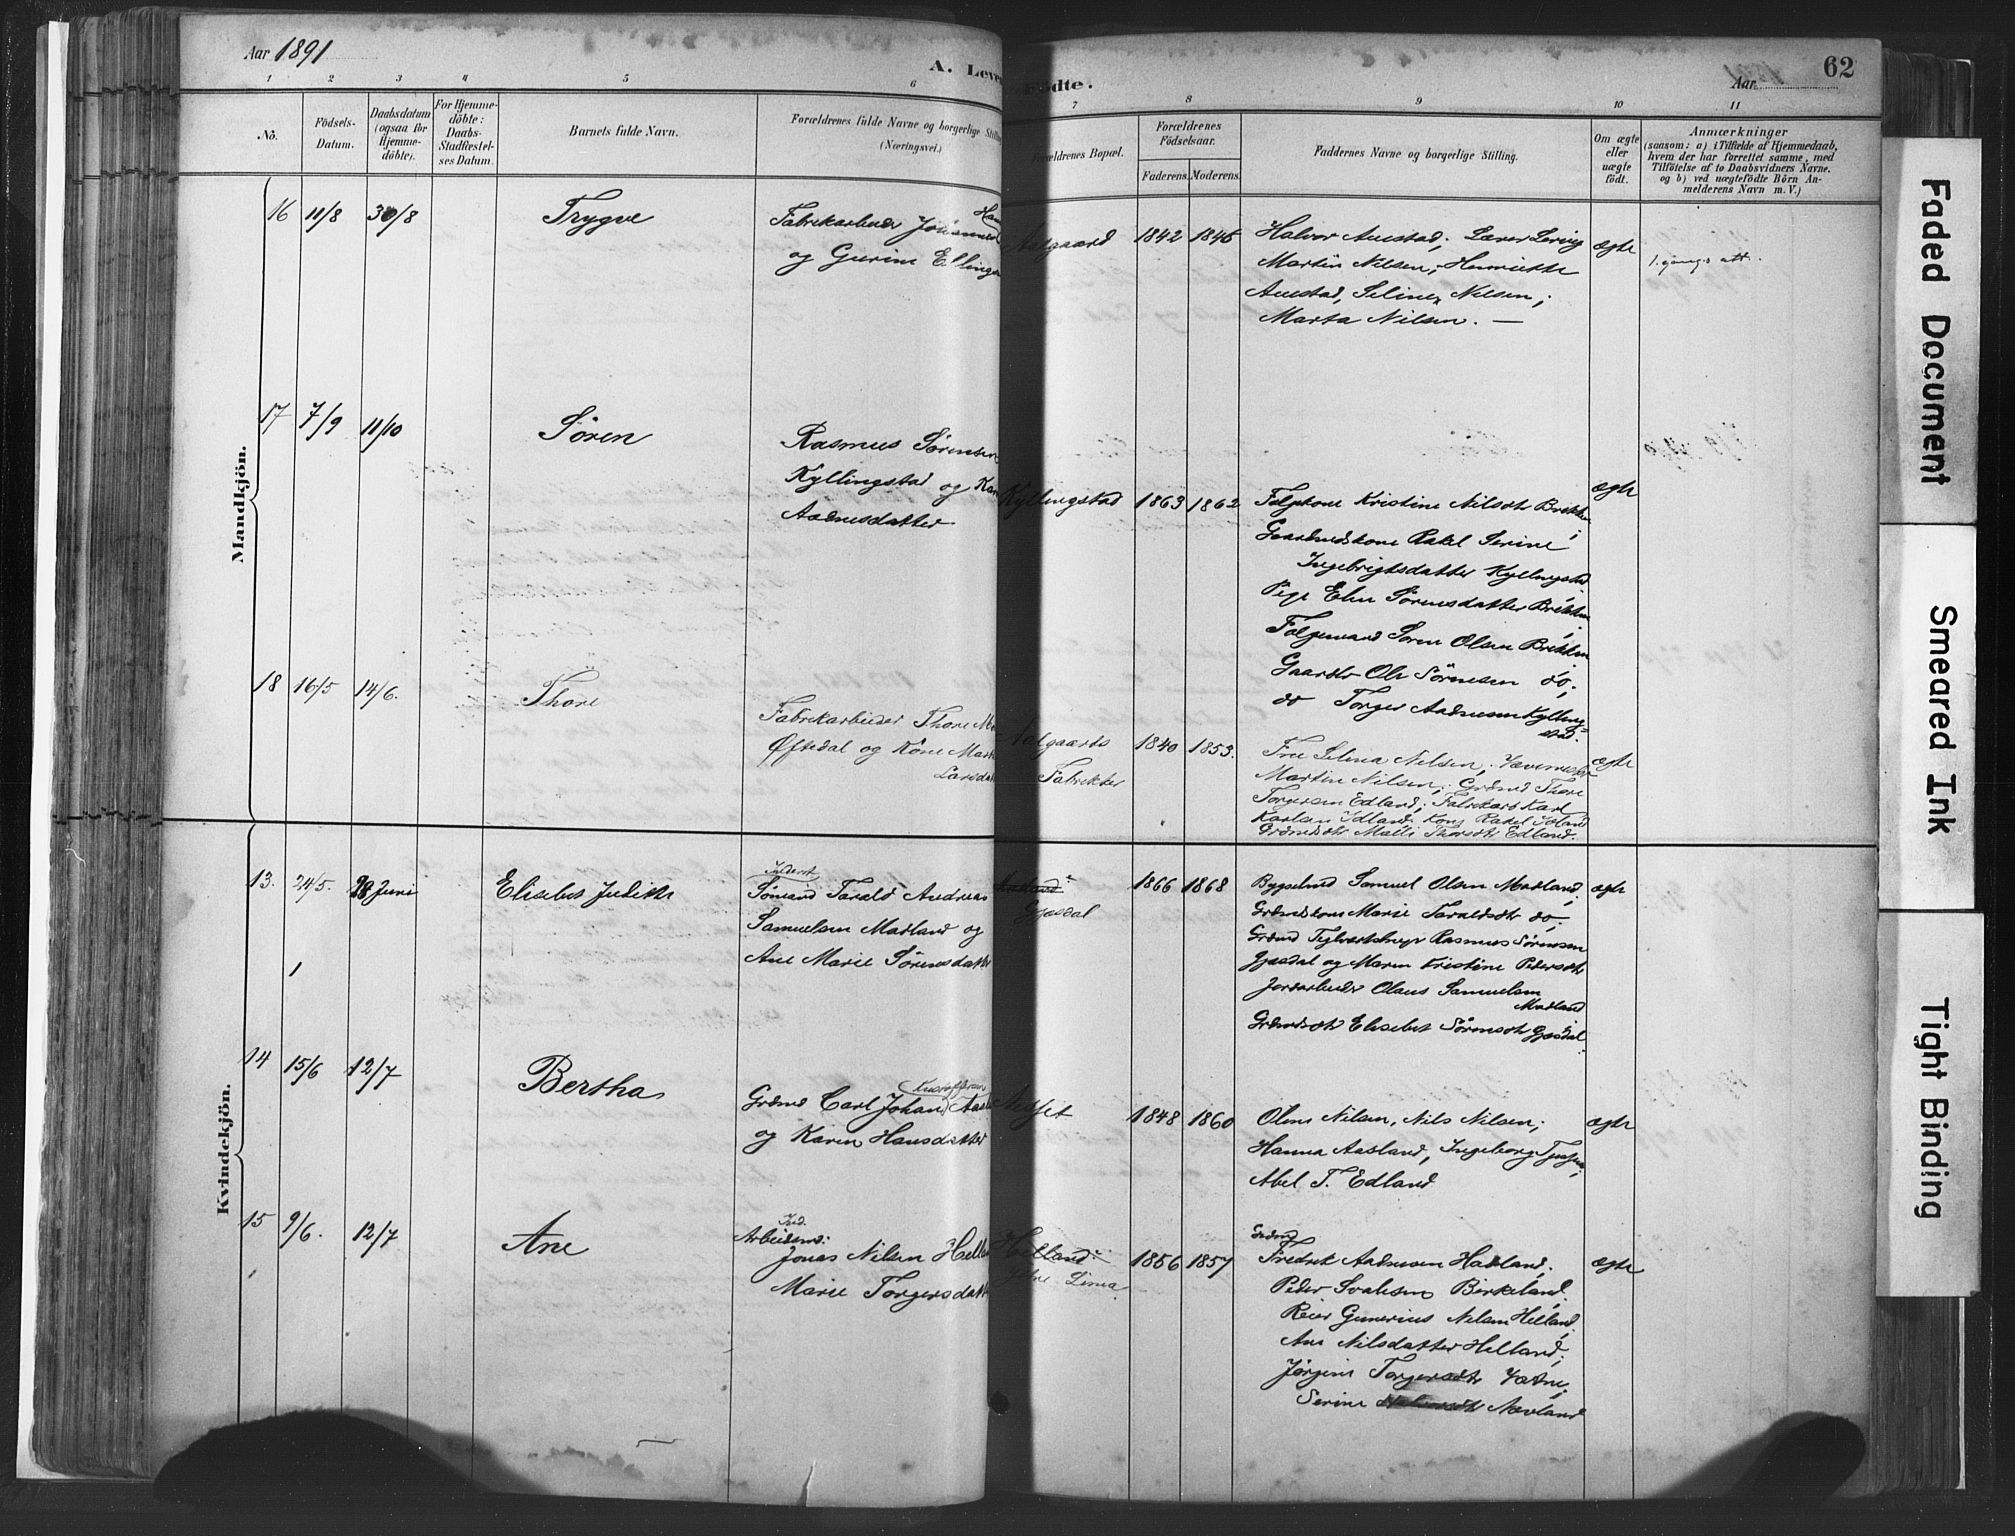 Aar 1891
A. Leve
ödte.
Aar
62
1 2 3 4 5 6 7 8 9 10 11
No.
Födsels-
Datum.
Daabsdatum
(ogsaa for
Hjemme-
döbte).
For Hjemme-
döbte:
Daabs-
Stadfæstel-
ses Datum.
Barnets fulde Navn.
Forældrenes fulde Navne og borgerlige Stilling
(Næringsvei.)
Forældrenes Bopæl.
Forældrenes
Födselsaar.
Faderens. Moderens.
Faddernes Navne og borgerlige Stilling.
Om ægte
eller
uægte
födt.
Anmærkninger
(saasom: a) i Tilfælde af Hjemmedaab,
hvem der har forrettet samme, med
Tilföielse af to Daabsvidners Navne.
og b) ved uægtefödte Börn An-
melderens Navn m. V.)
Mandkjön.
16 11/8 30/8 Trygve
Fabrikarbeider Johannes
og Gurine Ellings
Aalgaard 1842 1845
Halvor Auestad; Lærer
Martin Nilsen; Henriette
Auestad, Seline Nilsen;
Marta Nilsen. —
ægte
17 7/9 11/10 Sören
Rasmus Sørensen
Kyllingstad og Kar
Aadnesdatter
Kyllingstad 1863 1862
Følgekone Kristine Nilsdtr Brekken;
Gaardmdskone Rakel Serine
Ingebrigtsdatter Kyllingstad
Pige Elen Sørensdatter Brekken
Følgemand Søren Olsen Brekken
Gaardbr Ole Sørensen do.;
do Torger Aadnesen Kylling-
stad.
ægte
18 16/5 14/6. Thore
Fabrikarbeider Thore
Øftedal og Kone
Larsdat
Aalgaards
Fabrikker
1840 1853.
Frue Selina Nilsen; Vævemester
Martin Nilsen; Grdmd Thore
Torgersen Edland; Fabrikarb Karl
Karlsen Edland; Kone Rakel
Grdmdsdtr Malli Thorsdtr Edland.
ægte
Kvindekjön.
13. 24/5. 28 Juni Elisebet Judith
Inderst
Sømand Tarald Andreas
Samuelsen Madland og
Ane Marie Sørensdatter
Madland
Gjesdal
1866 1868
Bygselmd Samuel Olsen Madland;
Grdmdskone Marie Taraldsdtr do.
Grdmd Teglverksbest Rasmus Sørensen
Gjesdal og Maren Kristine Pedersdtr
Jordarbeider Olaus Samuelsen
Madland
Grdmdsdtr Elisebet Sørensdtr Gjesdal.
ægte
14 15/6 12/7 Bertha
Grdmd Carl Johan
og Karen Hansdatter
Nesset 1848 1860
Olene Nilsen, Nils Nilsen;
Hanna Aasland, Ingeborg
Abel T. Edland
ægte
15 9/6. 12/7 Ane
Ind.
Arbeidsmd:
Jonas Nilsen Hella
Marie Torgersdatt
Helland
Lima
1856 1857
Grdmd
Fredrik Aadnesen Hadland;
Peder Svalesen Birkeland;
Reier Gunerius Nilsen Helland
Ane Nilsdatter Helland;
Jörgine Torgersdtr
Serine Nævland
ægte
Faded Document
Smeared Ink
Tight Binding